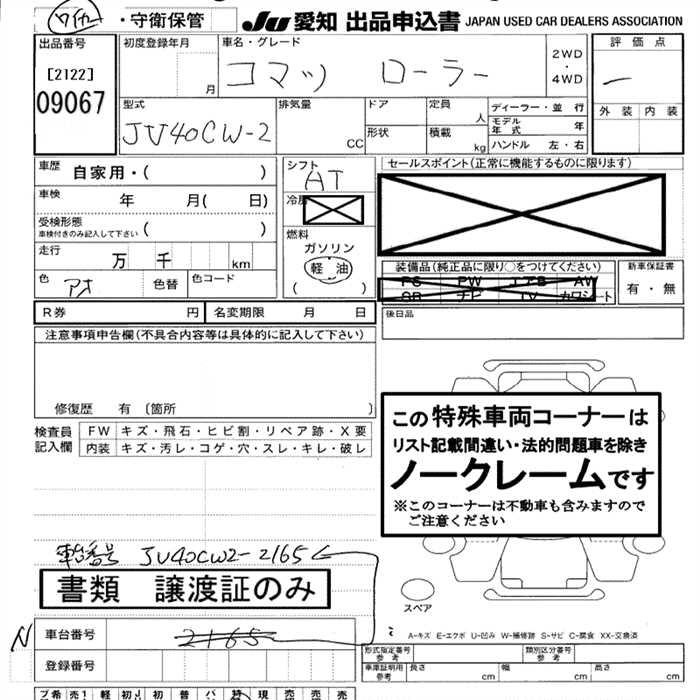 ・守衛保管 JU 愛知 出品申込書 JAPAN USED CAR DEALERS ASSOCIATION
出品番号
[2122]
09067
初度登録年月
月
車名・グレード
コマツ ローラー
2WD
・
4WD
評価点
一
外装 内装
型式
JV40CW-2
排気量
CC
ドア
形状
定員
人
積載
kg
ディーラー・並行
モデル年式 年
ハンドル 左・右
車歴
自家用・( )
車検 年 月( 日)
受検形態
車検付きのみ記入して下さい ( )
走行 万 千 km
色 アオ 色替 色コード
シフト
AT
燃料
ガソリン
(軽油)
セールスポイント(正常に機能するものに限ります)
装備品(純正品に限り○をつけてください)
PS PW エアB AW
SR ナビ TV カワシート
新車保証書
有・無
R券 円 名変期限 月 日
後日品
注意事項申告欄(不具合内容等は具体的に記入して下さい)
修復歴 有 〔箇所 〕
検査員記入欄
FW キズ・飛石・ヒビ割・リペア跡・X要
内装 キズ・汚レ・コゲ・穴・スレ・キレ・破レ
この特殊車両コーナーは
リスト記載間違い・法的問題車を除き
ノークレームです
※このコーナーは不動車も含みますので
ご注意ください
車台番号 JV40CW2-2165
書類 譲渡証のみ
スペア
N 車台番号 2165
登録番号
A-キズ E-エクボ U-凹み W-補修跡 S-サビ C-腐食 XX-交換済
形式指定番号 参考
類別区分番号 参考
車庫証明用 参考 長さ cm 幅 cm 高さ cm